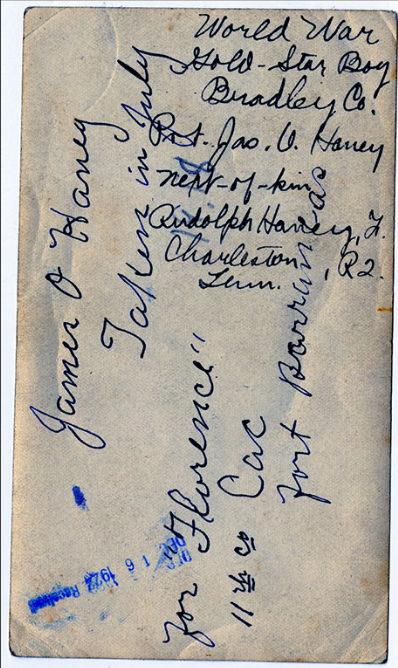 World War
Gold-Star Boy
Bradley Co.
Pvt. Jas. O. Haney
next-of-kin
Rudolph Haney, F.
Charleston, R2.
Tenn.
James O Haney
Taken in July
for Florence"
11th co Cac
Fort Barrancas
DEC 16 1922 Received